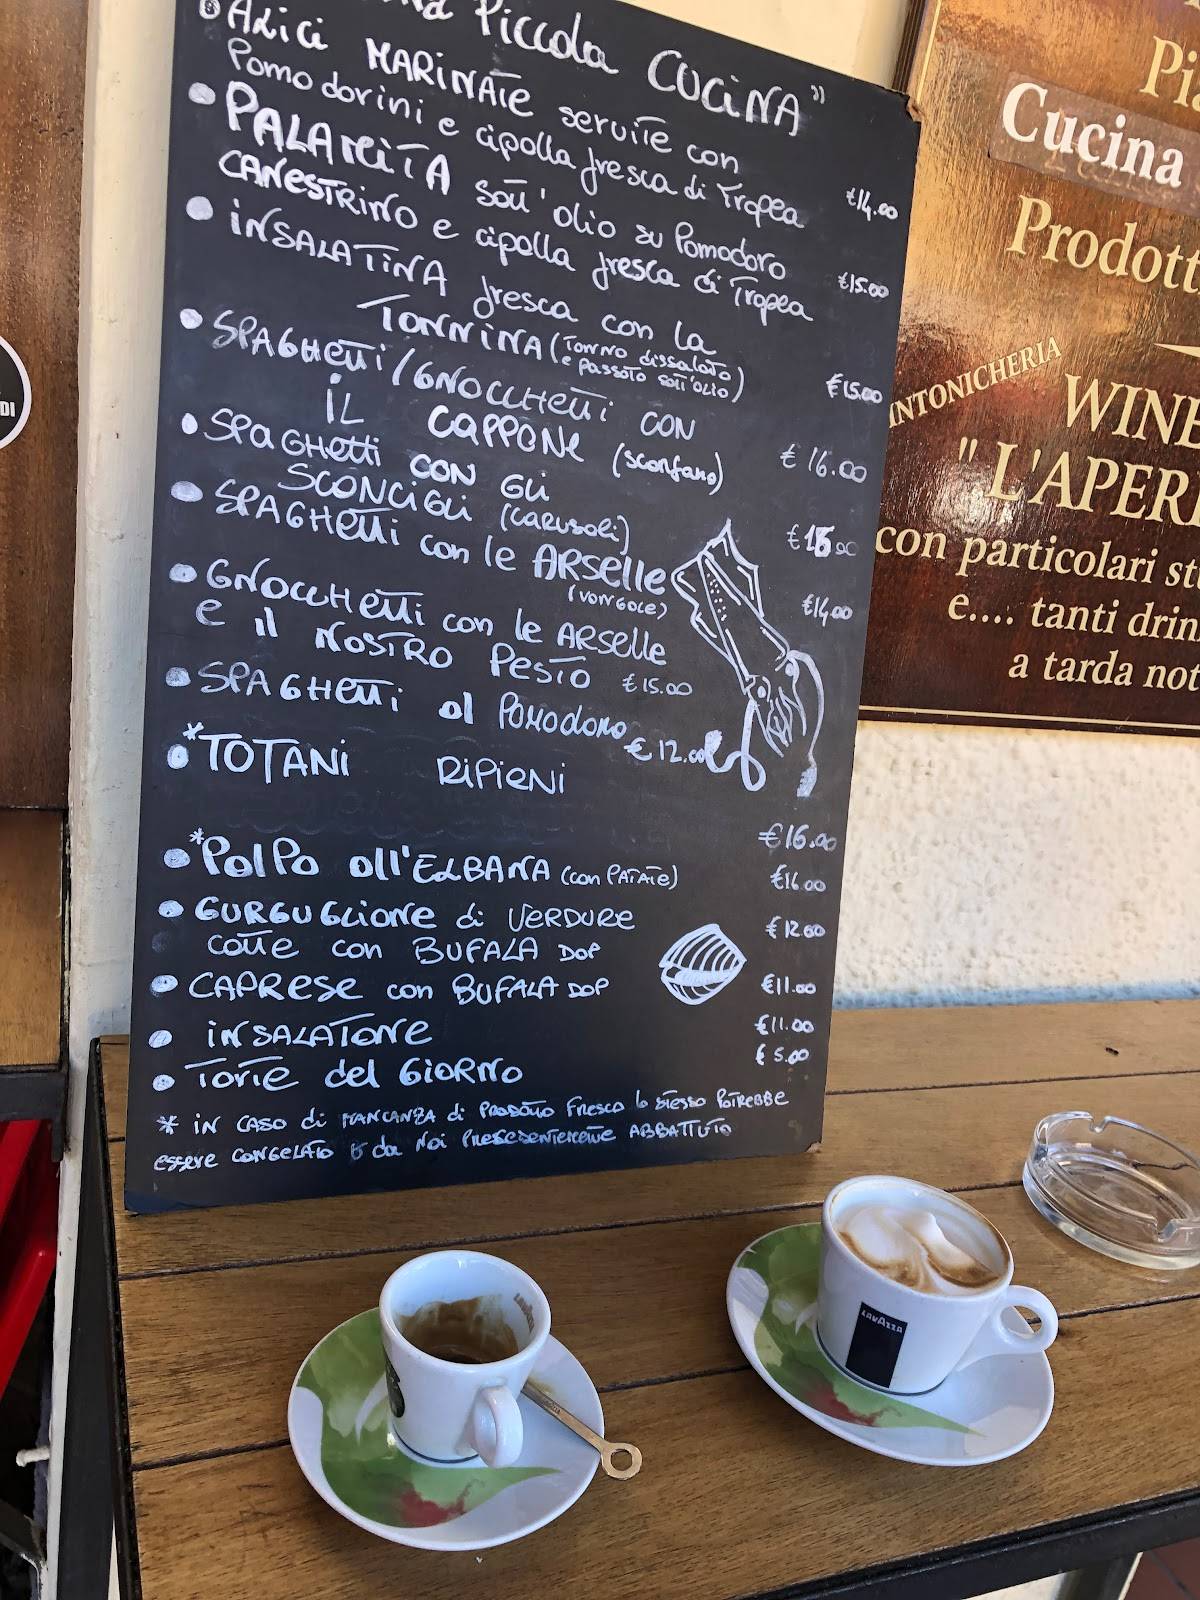 Piccola CUCINA"
• ALICI MARINATE servite con
Pomodorini e cipolla fresca di Tropea €14.00
• PALAMITA sott'olio su Pomodoro
CANESTRINO e cipolla fresca di Tropea €15.00
• INSALATINA fresca con la
TONNINA (TONNO dissalato
e passato sott'olio) €15.00
• SPAGHETTI/GNOCCHETTI CON
IL CAPPONE (scorfano) €16.00
• SPAGHETTI CON GLI
SCONCIGLI (CARUSOLI) €15.00
• SPAGHETTI con le ARSELLE
(VONGOLE) €14.00
• GNOCCHETTI con le ARSELLE
e il NOSTRO PESTO €15.00
• SPAGHETTI al POMODORO €12.00
*
• TOTANI RIPIENI
€16.00
• *POLPO all'ELBANA (con PATATE) €16.00
• GURGUGLIONE di VERDURE
cotte con BUFALA DOP €12.00
• CAPRESE con BUFALA DOP €11.00
• INSALATONE €11.00
• TORTE del GIORNO €5.00
* IN CASO di MANCANZA di PRODOTTO FRESCO lo stesso POTREBBE
essere CONGELATO o da NOI PRECEDENTEMENTE ABBATTUTO
Cucina
Prodott
INTONICHERIA
WINE
"L'APER
con particolari st
e.... tanti drin
a tarda not
DI
LAVAZZA